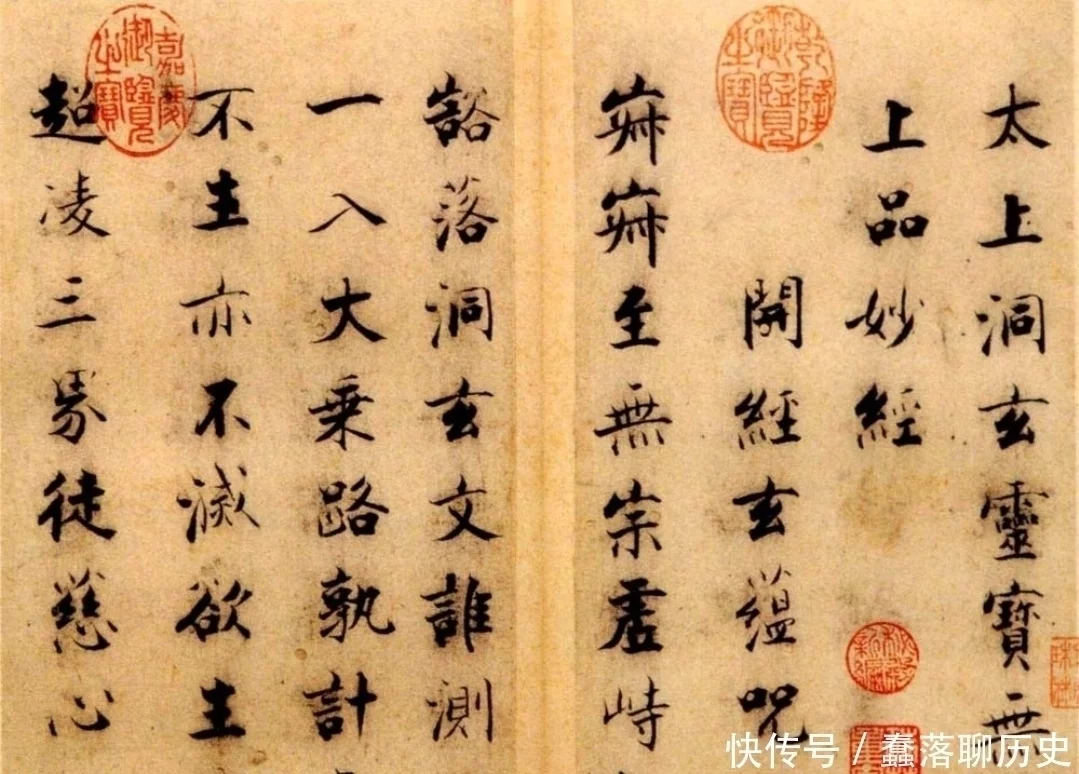 太上洞玄靈寶無
上品妙經
開經玄蘊呪
寂寂至無宗虛峙
豁落洞玄文誰測
一入大乘路孰計
不生亦不滅欲生
超凌三界徒慈心
乾隆御覽之寶
嘉慶御覽之寶
快传号 / 蠢落聊历史